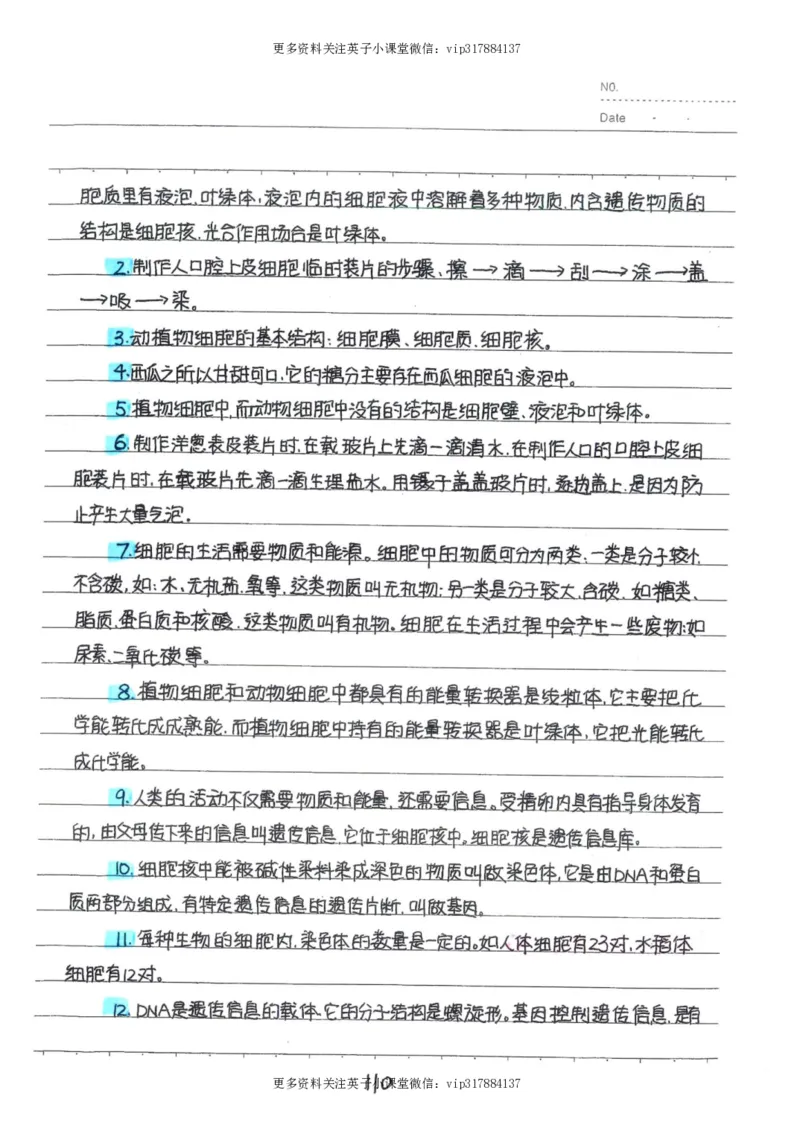 更多资料关注英子小课堂微信：vip317884137
NO.
Date
胞质里有液泡、叶绿体，液泡内的细胞液中溶解着多种物质、内含遗传物质的
结构是细胞核、光合作用场合是叶绿体。
2.制作人口腔上皮细胞临时装片的步骤、擦→滴→刮→涂→盖
→吸→染。
3.动植物细胞的基本结构：细胞膜、细胞质、细胞核。
4.西瓜之所以甘甜可口，它的糖分主要存在西瓜细胞的液泡中。
5.植物细胞中，而动物细胞中没有的结构是细胞壁、液泡和叶绿体。
6.制作洋葱表皮装片时，在载玻片上先滴一滴清水，在制作人口的口腔上皮细
胞装片时，在载玻片先滴一滴生理盐水。用镊子盖盖玻片时，逐边盖上，是因为防
止产生大量气泡。
7.细胞的生活需要物质和能源。细胞中的物质可分为两类，一类是分子较小
不含碳，如：水、无机盐、氧等，这类物质叫无机物；另一类是分子较大，含碳，如糖类、
脂质、蛋白质和核酸，这类物质叫有机物。细胞在生活过程中会产生一些废物；如
尿素、二氧化碳等。
8.植物细胞和动物细胞中都具有的能量转换器是线粒体，它主要把化
学能转化成成熟能，而植物细胞中持有的能量转换器是叶绿体，它把光能转化
成化学能。
9.人类的活动不仅需要物质和能量，还需要信息。受精卵内具有指导身体发育
的，由父母传下来的信息叫遗传信息，它位于细胞核中。细胞核是遗传信息库。
10.细胞核中能被碱性染料染成深色的物质叫做染色体，它是由DNA和蛋白
质两部分组成，有特定遗传信息的遗传片断，叫做基因。
11.每种生物的细胞内，染色体的数量是一定的。如人体细胞有23对，水稻体
细胞有12对。
12.DNA是遗传信息的载体、它的分子结构是螺旋形。基因控制遗传信息，是有
110
更多资料关注英子小课堂微信：vip317884137